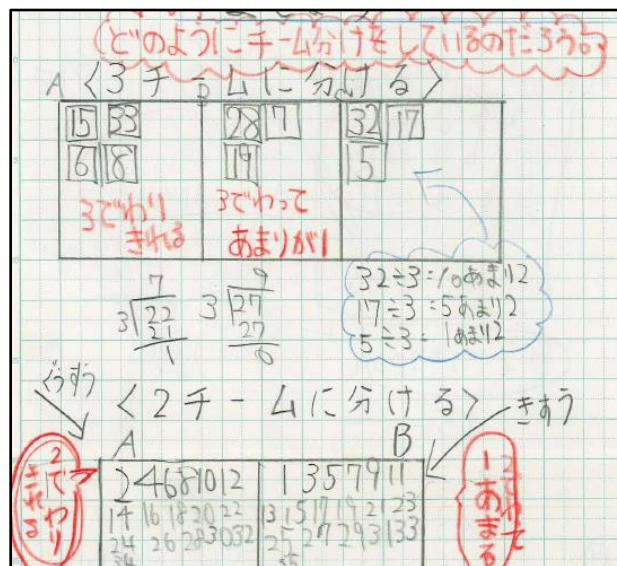 (どのようにチーム分けをしているのだろう。)
A 〈3チームに分ける〉
B
15 33
6 18
3でわり
きれる
28 7
19
3でわって
あまりが1
32 17
5
32÷3=10あまり2
17÷3=5あまり2
5÷3=1あまり2
7
3 22
21
1
9
3 27
27
0
ぐうすう
〈2チームに分ける〉
きすう
A
B
2でわり
きれる
2 4 6 8 10 12
14 16 18 20 22
24 26 28 30 32
34
1 3 5 7 9 11
13 15 17 19 21 23
25 27 29 31 33
35
2でわって
1あまる